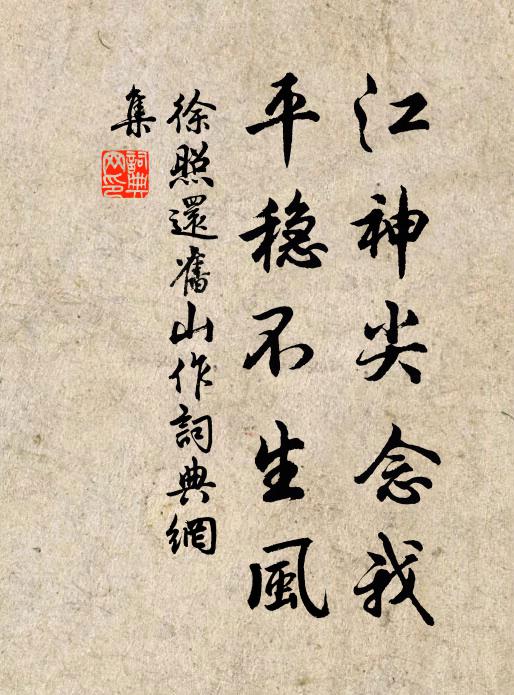 江神尖念我
平穏不生風
徐照還舊山作詞典網
集
詞典
网印